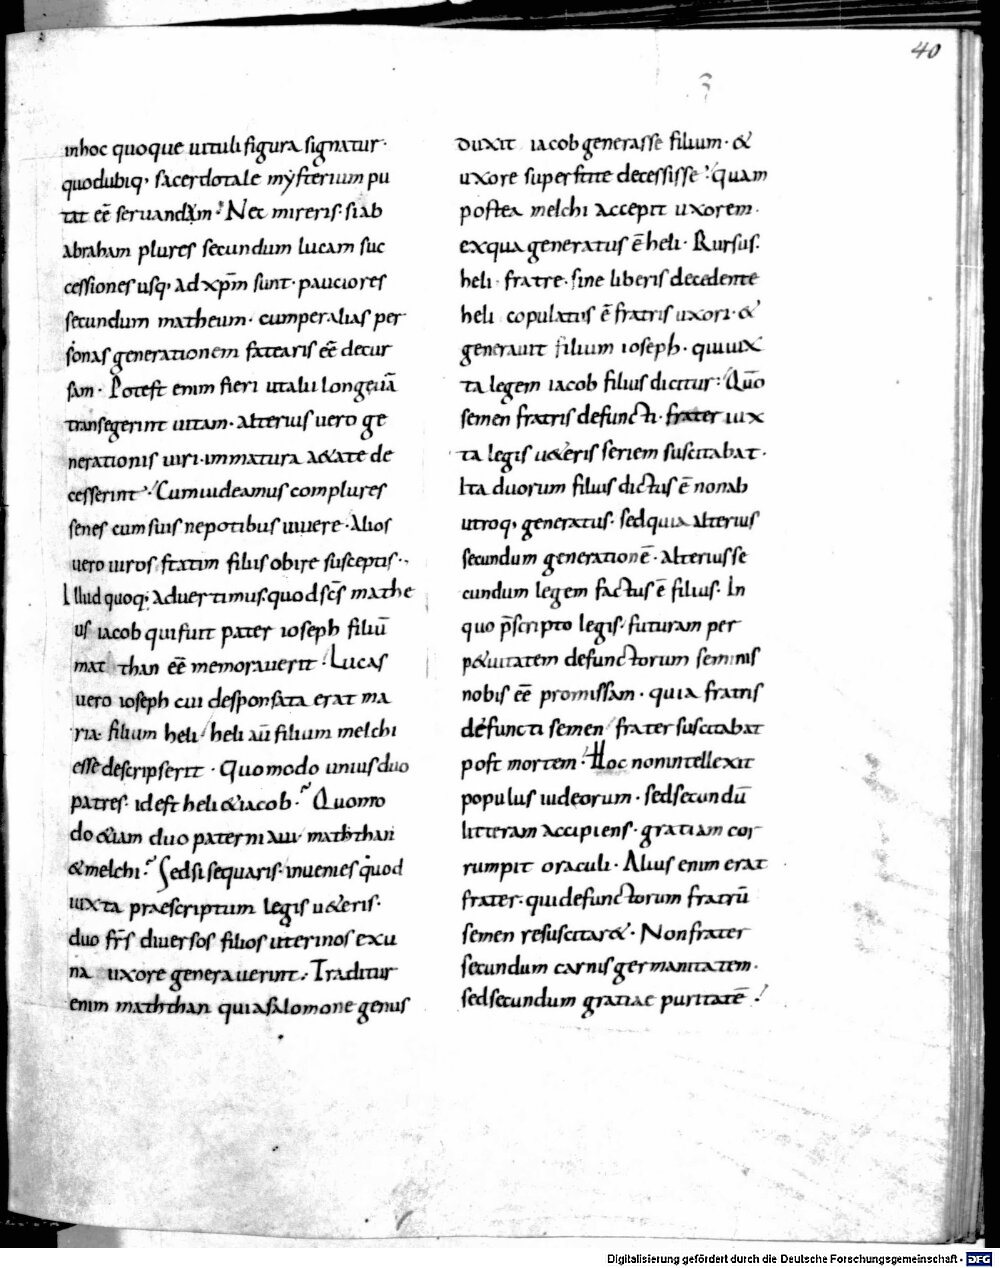 40
inhoc quoque uituli figura signatur·
quodubiq; sacerdotale mẏsterium pu
tat eē seruandum· Nec mireris· si ab
abraham plures secundum lucam suc
cessiones usq; ad xp̄m sunt· pauciores
secundum matheum· cum per alias per
sonas generationem fatearis eē decur
sam· Potest enim fieri ut alii longeuā
transegerint uitam· alterius uero ge
nerationis uiri· immatura a&ate de
cesserint· Cum uideamus complures
senes cum suis nepotibus uiuere· Alios
uero uiros statim filiis obire susceptis·
Illud quoq; aduertimus· quod sc̄s mathe
us iacob qui fuit pater ioseph filiū
mat than eē memorauerit· Lucas
uero ioseph cui desponsata erat ma
ria· filium heli heli aū filium melchi
esse descripserit· Quomodo unius duo
patres· id est heli &iacob· Quomo
do &iam duo paterni aui maththan
&melchi· Sed si sequaris· inuenies quod
iuxta praescriptum legis u&eris·
duo fr̄s diuersos filios uterinos ex u
na uxore generauerint· Traditur
enim maththan qui a salomone genus
duxit iacob generasse filium· &
uxore superstite decessisse· quam
postea melchi accepit uxorem·
ex qua generatus ē heli· Rursus·
heli· fratre· sine liberis decedente
heli copulatus ē fratris uxori· &
generauit filium ioseph· qui iux
ta legem iacob filius dicitur· Quō
semen fratris defuncti· frater iux
ta legis u&eris seriem suscitabat·
Ita duorum filius dictus ē non ab
utroq; generatus· sed quia alterius
secundum generationē· alterius se
cundum legem factus ē filius· In
quo p̄scripto legis futuram per
p&uitatem defunctorum seminis
nobis eē promissam· quia fratris
defuncti semen frater suscitabat
post mortem· Hoc non intellexit
populus iudeorum· sed secundū
litteram accipiens· gratiam cor
rumpit oraculi· Alius enim erat
frater· qui defunctorum fratrū
semen resuscitar&· Non frater
secundum carnis germanitatem·
sed secundum gratiae puritatē·
Digitalisierung gefördert durch die Deutsche Forschungsgemeinschaft - DFG